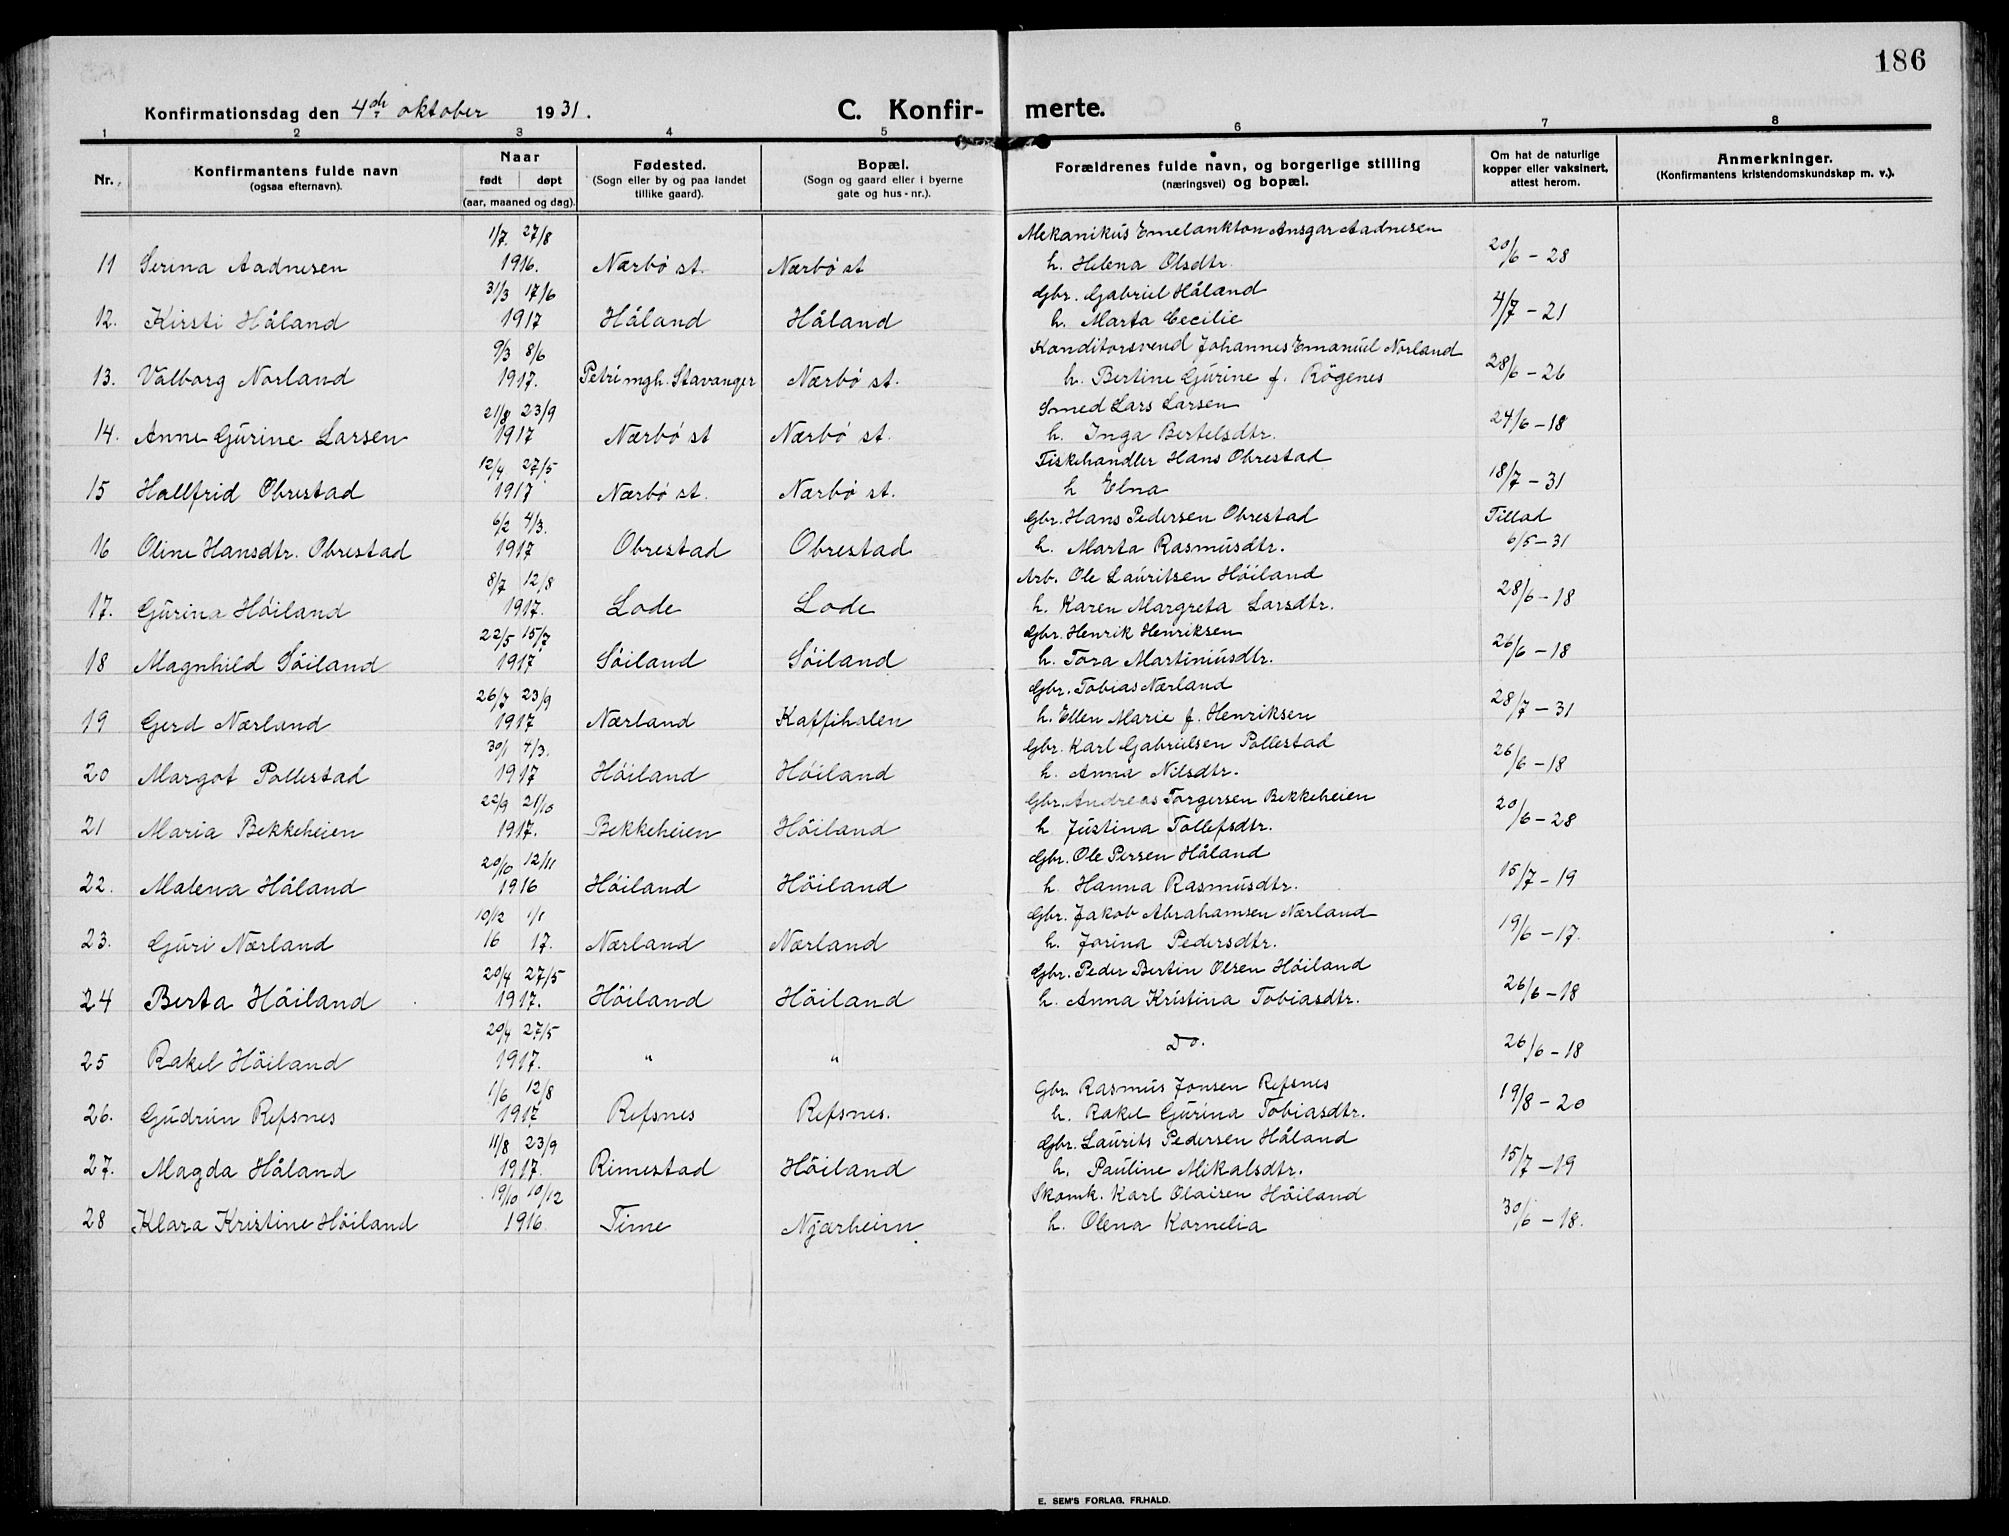 186
Konfirmationsdag den 4de oktober 1931. C. Konfir- merte.
1 2 3 4 5 6 7 8
Nr. Konfirmantens fulde navn (ogsaa efternavn). Naar født døpt (aar, maaned og dag). Fødested. (Sogn eller by og paa landet tillike gaard). Bopæl. (Sogn og gaard eller i byerne gate og hus-nr.). Forældrenes fulde navn, og borgerlige stilling (næringsvei) og bopæl. Om hat de naturlige kopper eller vaksinert, attest herom. Anmerkninger. (Konfirmantens kristendomskundskap m. v.).
1/7 27/8 Mekanikus Emelankton Ansgar Aadnesen
11 Serina Aadnesen 1916. Nærbö st. Nærbö st h. Helena Olsdtr. 20/6 - 28
31/3 17/6 Gbr. Gabriel Håland
12. Kirsti Håland 1917 Håland Håland h. Marta Cecilie 4/7 - 21
9/3 8/6 Konditorsvend Johannes Emanuel Norland
13. Valborg Norland 1917. Petri mgh. Stavanger Nærbö st. h. Bertine Gurine f. Rögenes 28/6 - 26
21/8 23/9 Smed Lars Larsen
14. Anne Gurine Larsen 1917 Nærbö st Nærbö st. h. Inga Bertelsdtr. 24/6 - 18
12/4 27/5 Fiskehandler Hans Obrestad
15 Hallfrid Obrestad 1917 Nærbö st. Nærbö st. h Elna 18/7 - 31
6/2 4/3. Gbr. Hans Pedersen Obrestad Tillad
16 Oline Hansdtr. Obrestad 1917 Obrestad Obrestad h. Marta Rasmusdtr. 6/5 - 31
8/7 12/8 Arb. Ole Lauritsen Höiland
17. Gurina Höiland 1917. Lode Lode h. Karen Margreta Larsdtr. 28/6 - 18
22/5 15/7 Gbr. Henrik Henriksen
18 Magnhild Söiland 1917 Söiland Söiland h. Tora Martiniusdtr. 26/6 - 18
26/7 23/9 Gbr. Tobias Nærland
19 Gerd Nærland 1917 Nærland Kaffihalen h. Ellen Marie f. Henriksen 28/7 - 31
30/1 4/3. Gbr. Karl Gabrielsen Pollestad
20 Margot Pollestad 1917 Höiland Höiland h. Anna Nilsdtr. 26/6 - 18
22/9 21/10 Gbr. Andreas Torgersen Bekkeheien
21 Maria Bekkeheien 1917. Bekkeheien Höiland h Justina Tollefsdtr. 20/6 - 28
20/10 12/11 Gbr. Ole Persen Håland
22. Malena Håland 1916 Höiland Höiland h Hanna Rasmusdtr. 15/7 - 19
10/12 1/1 Gbr. Jakob Abrahamsen Nærland
23. Guri Nærland 16 17. Nærland Nærland h. Jorina Pedersdtr. 19/6 - 17.
20/4 27/5 Gbr. Peder Bertin Olsen Höiland
24 Berta Höiland 1917. Höiland Höiland h. Anna Kristina Tobiasdtr. 26/6 - 18
20/4 27/5
25 Rakel Höiland 1917. " " Do. 26/6 - 18
1/6 12/8 Gbr. Rasmus Jonsen Refsnes
26. Gudrun Refsnes 1917 Refsnes Refsnes. h. Rakel Gurina Tobiasdtr. 19/8 - 20
11/8 23/9 Gbr. Laurits Pedersen Håland
27. Magda Håland 1917. Rimestad Höiland h. Pauline Mikalsdtr. 15/7 - 19
19/10 10/12 Skomk. Karl Olaisen Höiland
28 Klara Kristine Höiland 1916 Time Njærheim. h. Olena Kornelia 30/6 - 18.
E. SEM'S FORLAG, FR.HALD.